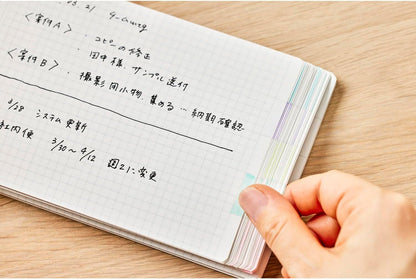 03.21 ターム mtg
〈案件A〉・コピーの修正
・田中様 サンプル送付
〈案件B〉・撮影用小物、集める…納期確認
3/28 システム更新
社内便 3/30～4/12 週2に変更